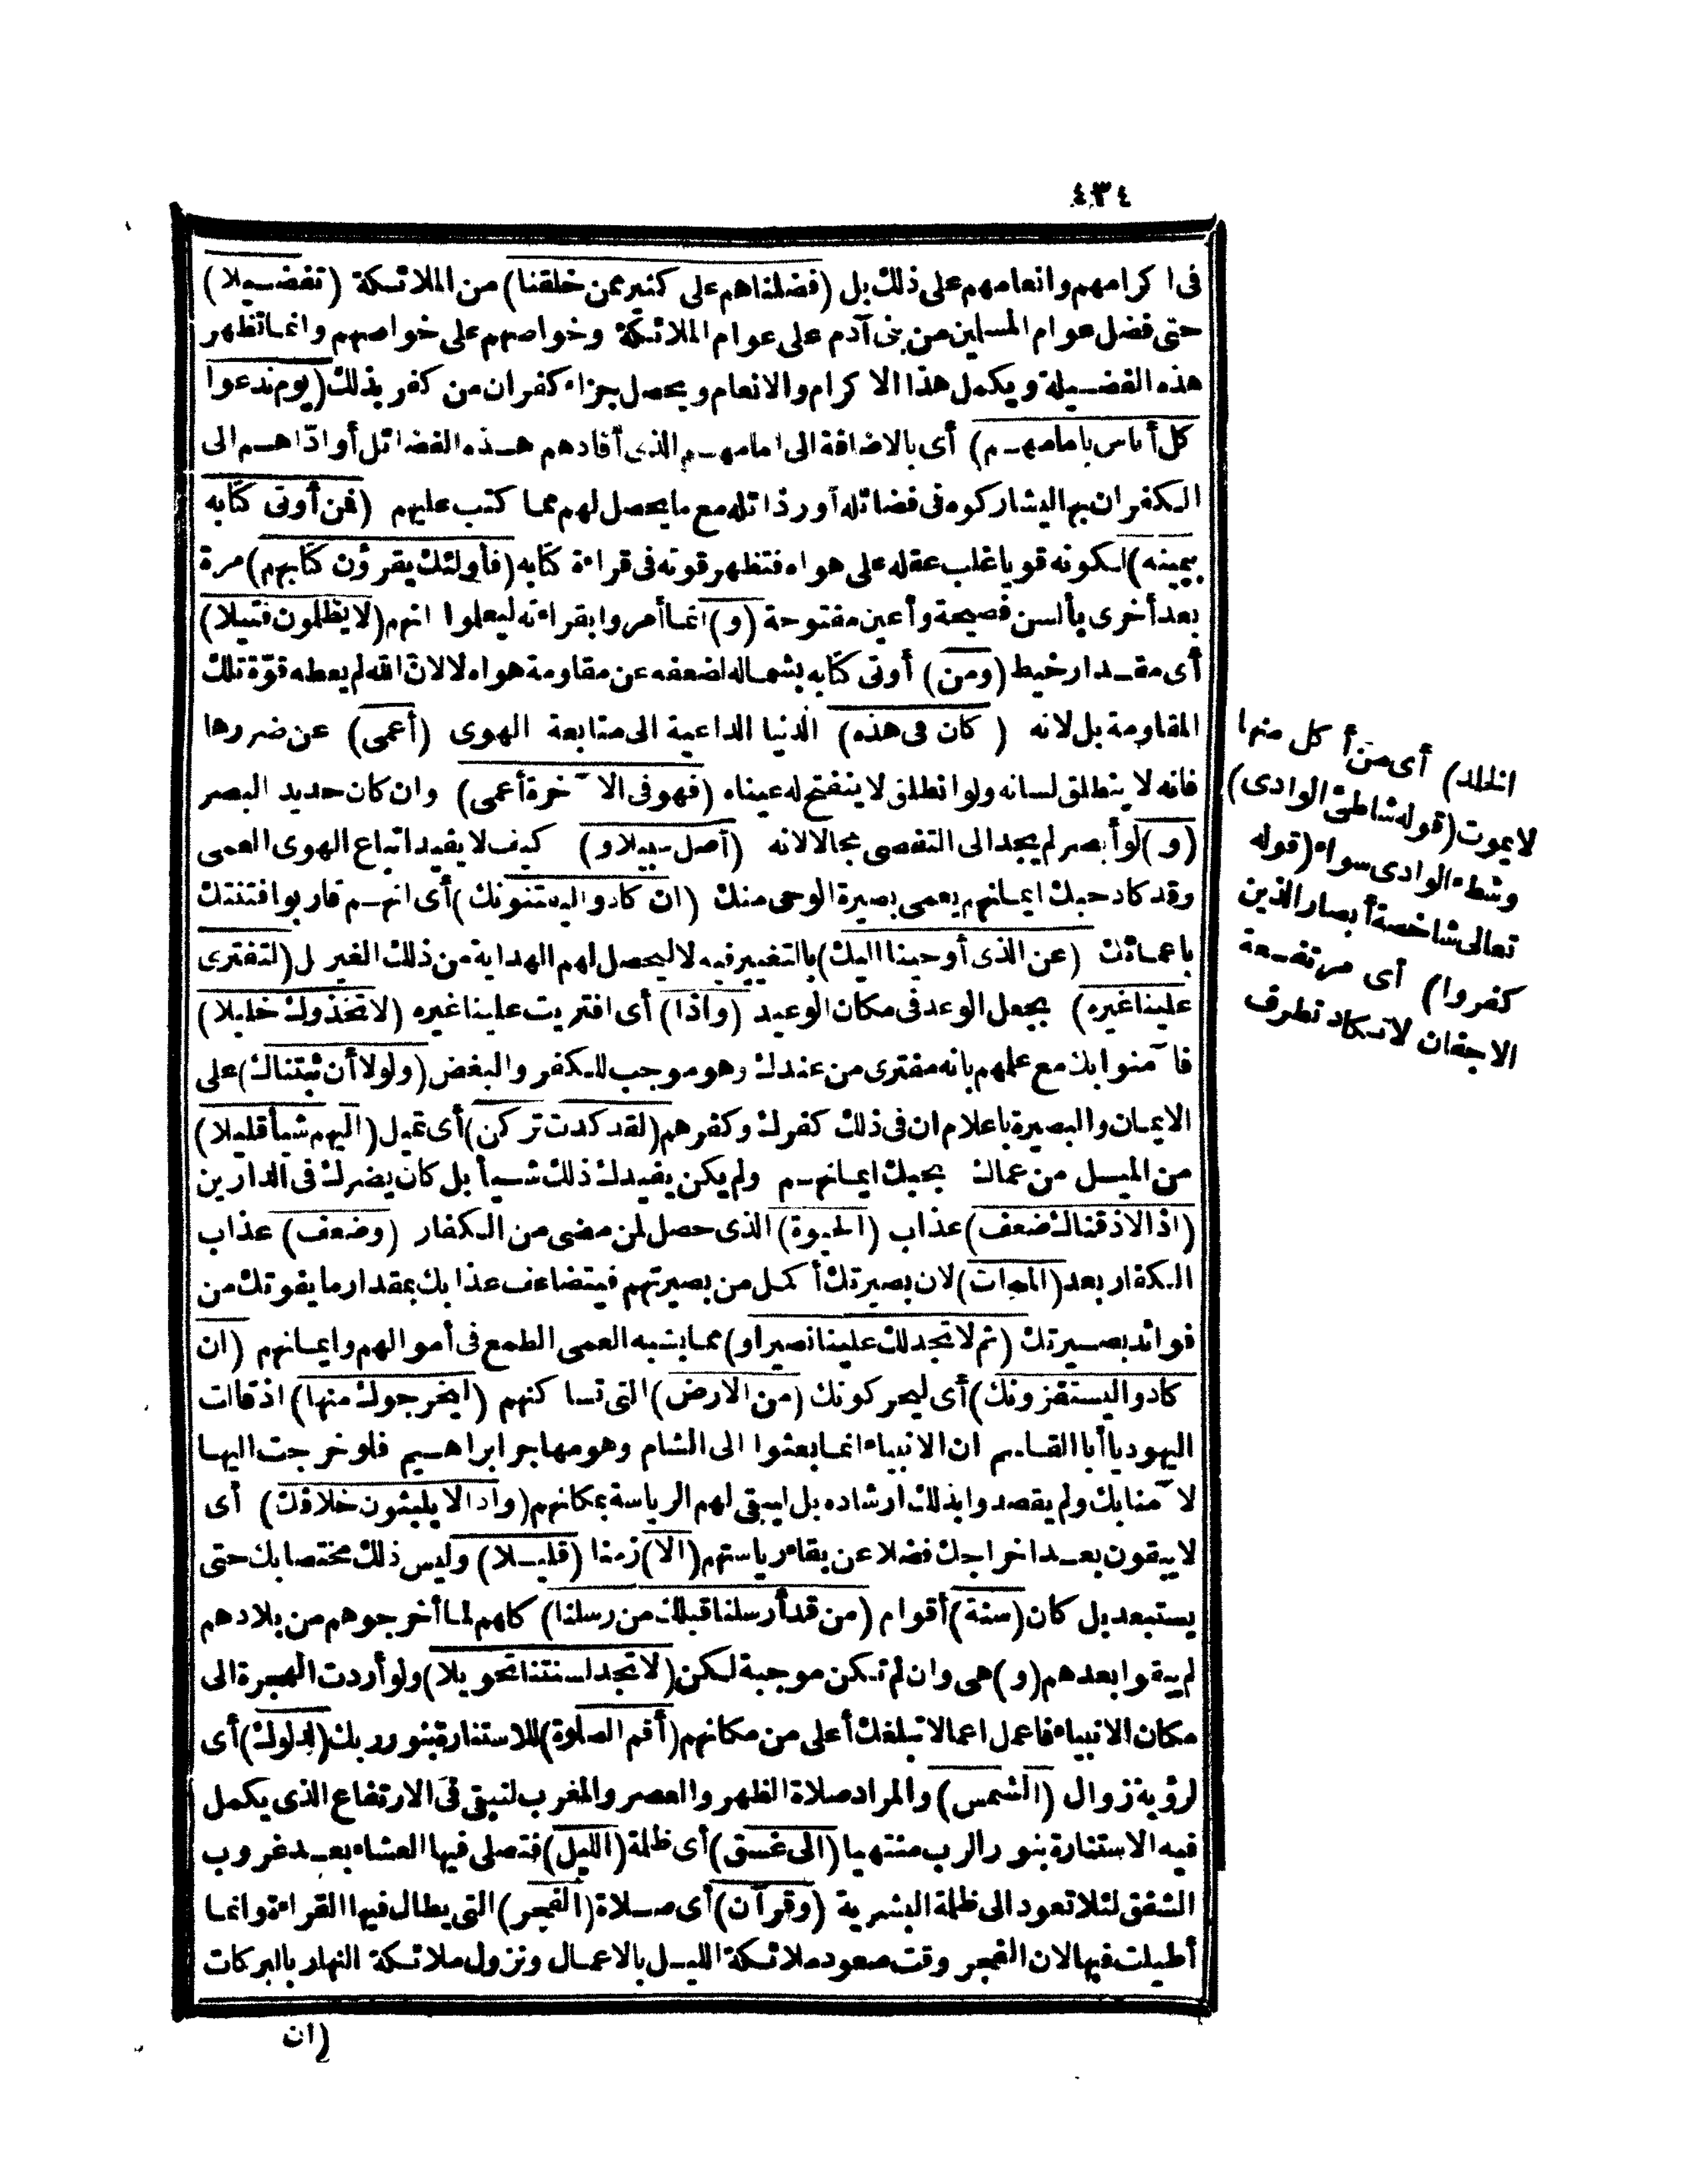 ٤٣٤
فى اكرامهم وانعامهم على ذلك بل (فضلناهم على كثير ممن خلقنا) من الملائكة (تفضيلا)
حتى فضل عوام المسلمين من بنى آدم على عوام الملائكة وخواصهم على خواصهم وانما تظهر
هذه الفضيلة ويكمل هذا الاكرام والانعام ويحصل جزاء كفران من كفر بذلك (يوم ندعوا
كل أناس بامامهم) أى بالاضافة الى امامهم الذى أفادهم هذه الفضائل أو ادّاهم الى
الكفران بها ليشاركوه فى فضائله أو رذائله مع ما يحصل لهم مما كتب عليهم (فمن أوتى كتابه
بيمينه) لكونه قويا غلب عقله على هواه فتظهر قوته فى قراءة كتابه (فأولئك يقرؤن كتابهم) مرة
بعد أخرى بألسن فصيحة وأعين مفتوحة (و) انما أمروا بقراءته ليعلموا انهم (لا يظلمون فتيلا)
أى مقدار خيط (ومن) أوتى كتابه بشماله لضعفه عن مقاومة هواه لا لانّ الله لم يعطه قوّة تلك
المقاومة بل لانه (كان فى هذه) الدنيا الداعية الى متابعة الهوى (أعمى) عن ضررها
فانه لا ينطلق لسانه ولو انطلق لا ينفتح له عيناه (فهو فى الآخرة أعمى) وان كان حديد البصر
(و) لو أبصر لم يجد الى التفصى مجالا لانه (أضل سبيلا و) كيف لا يفيد اتباع الهوى العمى
وقد كاد حبك ايمانهم يعمى بصيرة الوحى منك (ان كادوا ليفتنونك) أى انهم قاربوا فتنتك
باعمائك (عن الذى أوحينا اليك) بالتغيير فيه لا ليحصل لهم الهداية من ذلك الغير ل (لتفترى
علينا غيره) بجعل الوعد فى مكان الوعيد (واذا) أى افتريت علينا غيره (لاتخذوك خليلا)
فآمنوا بك مع علمهم بانه مفترى من عندك وهو موجب للكفر والبغض (ولولا أن ثبتناك) على
الايمان والبصيرة باعلام ان فى ذلك كفرك وكفرهم (لقد كدت تركن) أى تميل (اليهم شيأ قليلا)
من الميل من عماك بحبك ايمانهم ولم يكن يفيدك ذلك شيأ بل كان يضرك فى الدارين
(اذا لاذقناك ضعف) عذاب (الحيوة) الذى حصل لمن مضى من الكفار (وضعف) عذاب
الكفار بعد (الممات) لان بصيرتك أكمل من بصيرتهم فيتضاعف عذابك بمقدار ما يفوتك من
فوائد بصيرتك (ثم لا تجد لك علينا نصيرا و) مما يشبه العمى الطمع فى أموالهم وايمانهم (ان
كادوا ليستفزونك) أى ليحركونك (من الارض) التى تساكنهم (ليخرجوك منها) اذ قالت
اليهود يا أبا القاسم ان الانبياء انما بعثوا الى الشام وهو مهاجر ابراهيم فلو خرجت اليها
لآمنا بك ولم يقصدوا بذلك ارشاده بل ليبقى لهم الرياسة بمكانهم (واذا لا يلبثون خلافك) أى
لا يبقون بعد اخراجك فضلا عن بقاء رياستهم (الا) زمنا (قليلا) وليس ذلك مختصا بك حتى
يستبعد بل كان (سنة) أقوام (من قد أرسلنا قبلك من رسلنا) كلهم لما أخرجوهم من بلادهم
لم يبقوا بعدهم (و) هى وان لم تكن موجبة لكن (لا تجد لسنتنا تحويلا) ولو أردت الهجرة الى
مكان الانبياء فاعمل اعمالا تبلغك أعلى من مكانهم (أقم الصلوة) للاستنارة بنور ربك (لدلوك) أى
لرؤية زوال (الشمس) والمراد صلاة الظهر والعصر والمغرب لتبقى فى الارتفاع الذى يكمل
فيه الاستنارة بنور الرب منتهيا (الى غسق) أى ظلمة (الليل) فتصلى فيها العشاء بعد غروب
الشفق لئلا تعود الى ظلمة البشرية (وقرآن) أى صلاة (الفجر) التى يطال فيها القراءة وانما
أطيلت فيها لان الفجر وقت صعود ملائكة الليل بالاعمال ونزول ملائكة النهار بالبركات
(ان
الخلد) أى من أكل منها
لا يموت (قوله شاطئ الوادى)
وشطء الوادى سواء (قوله
تعالى شاخصة أبصار الذين
كفروا) أى مرتفعة
الاجفان لا تكاد تطرف